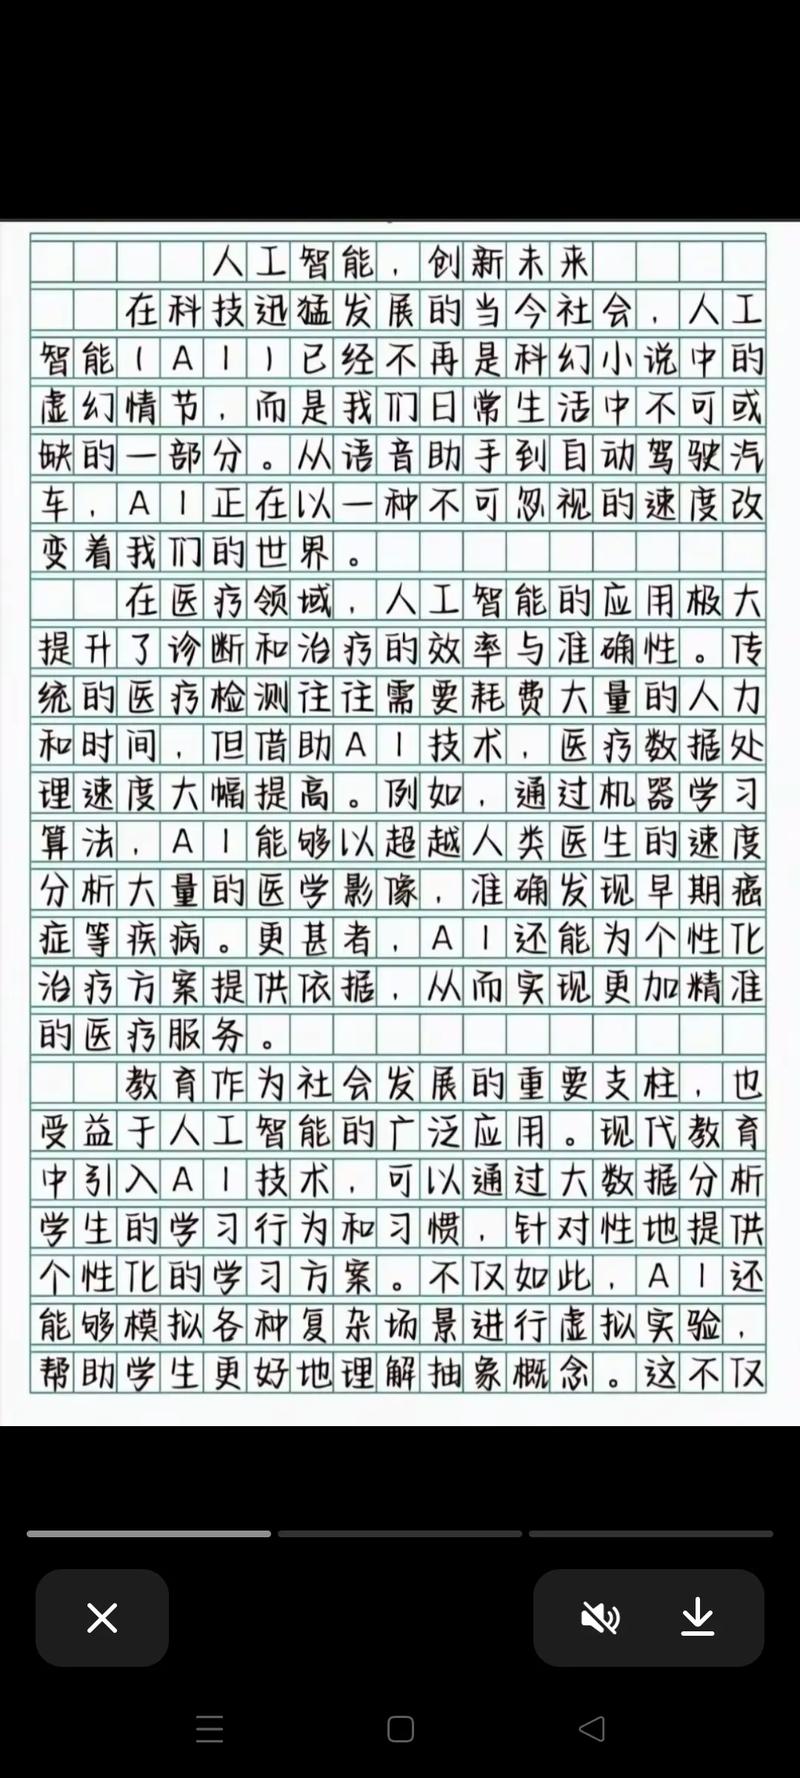 人工智能，创新未来
在科技迅猛发展的当今社会，人工
智能（AI）已经不再是科幻小说中的
虚幻情节，而是我们日常生活中不可或
缺的一部分。从语音助手到自动驾驶汽
车，AI正在以一种不可忽视的速度改
变着我们的世界。
在医疗领域，人工智能的应用极大
提升了诊断和治疗的效率与准确性。传
统的医疗检测往往需要耗费大量的人力
和时间，但借助AI技术，医疗数据处
理速度大幅提高。例如，通过机器学习
算法，AI能够以超越人类医生的速度
分析大量的医学影像，准确发现早期癌
症等疾病。更甚者，AI还能为个性化
治疗方案提供依据，从而实现更加精准
的医疗服务。
教育作为社会发展的重要支柱，也
受益于人工智能的广泛应用。现代教育
中引入AI技术，可以通过大数据分析
学生的学习行为和习惯，针对性地提供
个性化的学习方案。不仅如此，AI还
能够模拟各种复杂场景进行虚拟实验，
帮助学生更好地理解抽象概念。这不仅